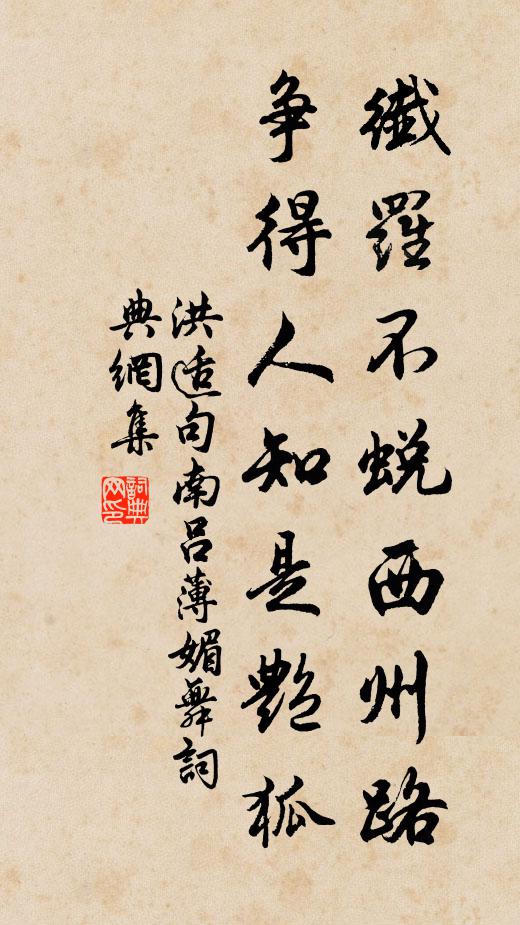 纖羅不蜕西州路
争得人知是艷狐
洪适句南吕薄媚舞詞
典網集
詞典網印